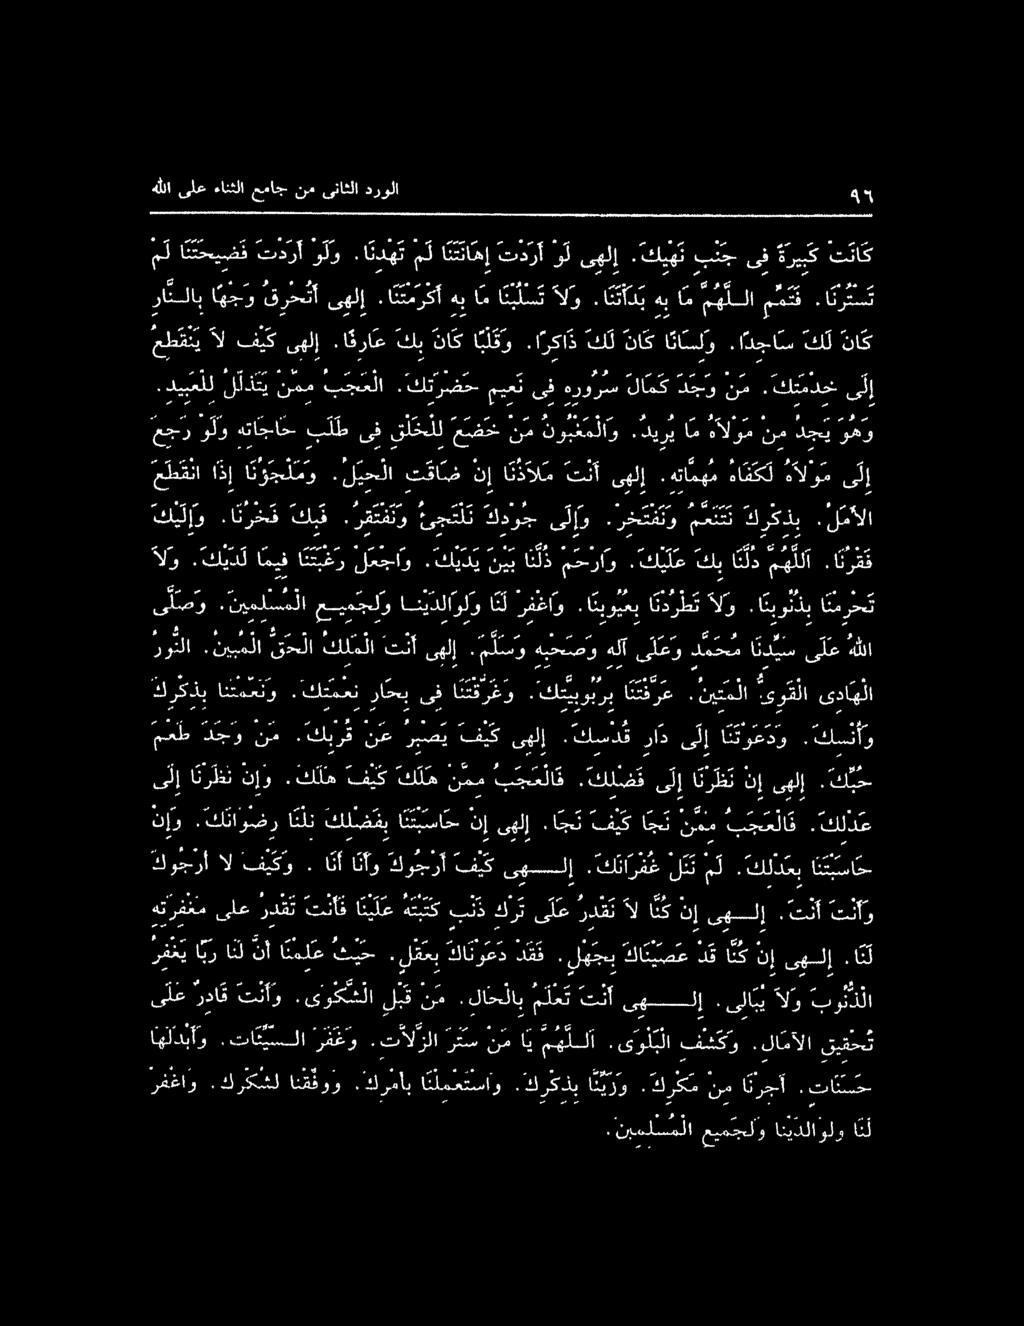 ٩٦ الورد الثانى من جامع الثناء على الله
كَانَتْ كَبِيرَةً فِى جَنْبِ نَهْيِكَ. إِلهِى لَوْ أَرَدْتَ إِهَانَتَنَا لَمْ تَهْدِنَا. وَلَوْ أَرَدْتَ فَضِيحَتَنَا لَمْ
تَسْتُرْنَا. فَتَمِّمِ الـلَّهُمَّ مَا بِهِ بَدَأْتَنَا. وَلاَ تَسْلُبْنَا مَا بِهِ أَكْرَمْتَنَا. إِلهِى أَتُحْرِقُ وَجْهًا بِالـنَّارِ
كَانَ لَكَ سَاجِدًا. وَلِسَانًا كَانَ لَكَ ذَاكِرًا. وَقَلْبًا كَانَ بِكَ عَارِفًا. إِلهِى كَيْفَ لاَ يَنْقَطِعُ
إِلَى خِدْمَتِكَ. مَنْ وَجَدَ كَمَالَ سُرُورِهِ فِى نَعِيمِ حَضْرَتِكَ. الْعَجَبُ مِمَّنْ يَتَذَلَّلُ لِلْعَبِيدِ.
وَهُوَ يَجِدُ مِنْ مَوْلاَهُ مَا يُرِيدُ. وَالْمَغْبُونُ مَنْ خَضَعَ لِلْخَلْقِ فِى طَلَبِ حَاجَاتِهِ وَلَوْ رَجَعَ
إِلَى مَوْلاَهُ لَكَفَاهُ مُهِمَّاتِهِ. إِلهِى أَنْتَ مَلاَذُنَا إِنْ ضَاقَتِ الْحِيَلُ. وَمَلْجَؤُنَا إِذَا انْقَطَعَ
الأَمَلُ. بِذِكْرِكَ نَتَنَعَّمُ وَنَفْتَخِرُ. وَإِلَى جُوْدِكَ نَلْتَجِئُ وَنَفْتَقِرُ. فَبِكَ فَخْرُنَا. وَإِلَيْكَ
فَقْرُنَا. اَللَّهُمَّ دُلَّنَا بِكَ عَلَيْكَ. وَارْحَمْ ذُلَّنَا بَيْنَ يَدَيْكَ. وَاجْعَلْ رَغْبَتَنَا فِيمَا لَدَيْكَ. وَلاَ
تَحْرِمْنَا بِذُنُوبِنَا. وَلاَ تَطْرُدْنَا بِعُيُوبِنَا. وَاغْفِرْ لَنَا وَلِوَالِدَيْنَـا وَلِجَمِيـعِ الْمُسْلِمِينَ. وَصَلَّى
اللهُ عَلَى سَيِّدِنَا مُحَمَّدٍ وَعَلَى آلِهِ وَصَحْبِهِ وَسَلَّمَ. إِلهِى أَنْتَ الْمَلِكُ الْحَقُّ الْمُبِينُ. النُّورُ
الْهَادِى الْقَوِىُّ الْمَتِينُ. عَرَّفْتَنَا بِرُبُوبِيَّتِكَ. وَغَرَّقْتَنَا فِى بِحَارِ نِعْمَتِكَ. وَنَعَّمْتَنَا بِذِكْرِكَ
وَأُنْسِكَ. وَدَعَوْتَنَا إِلَى دَارِ قُدْسِكَ. إِلهِى كَيْفَ يَصْبِرُ عَنْ قُرْبِكَ. مَنْ وَجَدَ طَعْمَ
حُبِّكَ. إِلهِى إِنْ نَظَرْنَا إِلَى فَضْلِكَ. فَالْعَجَبُ مِمَّنْ هَلَكَ كَيْفَ هَلَكَ. وَإِنْ نَظَرْنَا إِلَى
عَدْلِكَ. فَالْعَجَبُ مِمَّنْ نَجَا كَيْفَ نَجَا. إِلهِى إِنْ حَاسَبْتَنَا بِفَضْلِكَ نِلْنَا رِضْوَانَكَ. وَإِنْ
حَاسَبْتَنَا بِعَدْلِكَ. لَمْ نَنَلْ غُفْرَانَكَ. إِلـــهِى كَيْفَ أَرْجُوكَ وَأَنَا أَنَا . وَكَيْفَ لا أَرْجُوكَ
وَأَنْتَ أَنْتَ. إِلـــهِى إِنْ كُنَّا لاَ نَقْدِرُ عَلَى تَرْكِ ذَنْبٍ كَتَبْتَهُ عَلَيْنَا فَأَنْتَ تَقْدِرُ عَلَى مَغْفِرَتِهِ
لَنَا. إِلـــهِى إِنْ كُنَّا قَدْ عَصَيْنَاكَ بِجَهْلٍ. فَقَدْ دَعَوْنَاكَ بِعَقْلٍ. حَيْثُ عَلِمْنَا أَنَّ لَنَا رَبًّا يَغْفِرُ
الذُّنُوبَ وَلاَ يُبَالِى. إِلـــهِى أَنْتَ تَعْلَمُ بِالْحَالِ. مَنْ قَبْلِ الشَّكْوَى. وَأَنْتَ قَادِرٌ عَلَى
تَحْقِيقِ الآمَالِ. وَكَشْفِ الْبَلْوَى. الـلَّهُمَّ يَا مَنْ سَتَرَ الزَّلاَّتِ. وَغَفَرَ الـسَّيِّئَاتِ. وَأَبْدَلَهَا
حَسَنَاتٍ. أَجِرْنَا مِنْ مَكْرِكَ. وَزَيِّنَّا بِذِكْرِكَ. وَاسْتَعْمِلْنَا بِأَمْرِكَ. وَوَفِّقْنَا لِشُكْرِكَ. وَاغْفِرْ
لَنَا وَلِوَالِدَيْنَا وَلِجَمِيعِ الْمُسْلِمِينَ.